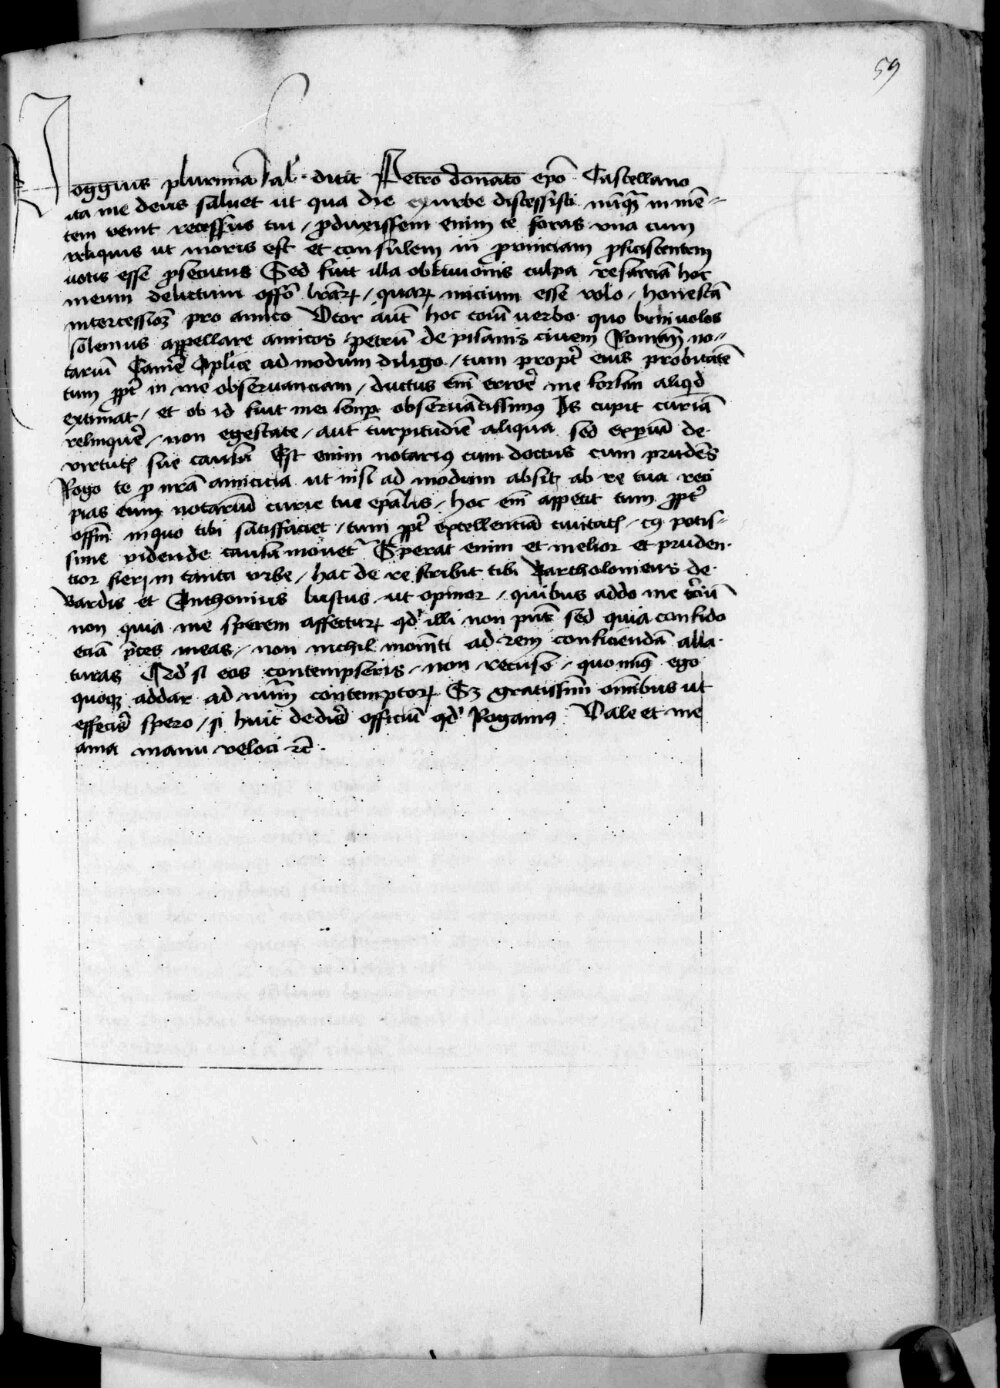 59
Poggius plurimā sal'. dicit Petro donato ep̄o Castellano
ita me deus saluet ut qua die ex urbe discessisti nūq̄ȝ in mē-
tem venit recessus tui / p̱duxissem enim te foras vna cum
reliquis ut moris est et consulem in prouinciam p̱ficiscentem
uotis essē p̱secutus Sed fuit illa obliuionis culpa resarciā hoc
meum delictum offō lr̄arꝝ / quarꝝ inicium esse volo / honestā
intercessioȝ pro amico Vtor aūt hoc coīi verbo quo beniuolos
solemus appellare amicos / petrū de pisanis ciuem Romanū no-
tariū Camē Aplīce ad modum diligo / tum propt' eius probitatē
tum p̱pt' in me obseruanciam / ductus em̄ errorē me forsan aliq'd
extimat / et ob id fuit mei semp̱ obseruātissimꝰ Is cupit curiā
relinquē / non egestate / aut turpitudīe aliqua sed
virtutꝭ sue causā Est enim notariꝰ cum doctus cum prudēs
Rogo te p̱ nr̄ā amicicia ut nisi ad modum absit ab re tua reci
pias eum notariū curie tue ep̄alis / hoc em̄ appetit tum p̱pt'
offīm in quo tibi satisfaciet / tum p̱pt' excellentiā ciuitatꝭ / cꝰ potis-
sime vidende causā mouet' Sperat enim et melior et pruden-
tior fieri in tanta vrbe / hac de re scribit tibi Bartholomeus de
Bardis et Anthonius luscus ut opinor / quibus addo me t'ciū
non quia me sperem affecturꝝ qd' illi non pn̄t sed quia confido
eciā p̄ces meas / non nichil mom̄ti ad rem conficiendā alla-
turas Qd' si eos contempseris / non recuso / quo minꝰ ego
quoqȝ addar ad nūm contemptorꝝ Sȝ gratissim̄ om̄ibus ut
effecis' spero / si huic dedis' officiū qd' Rogamꝰ Vale et me
ama manu veloci ⁊c̄.